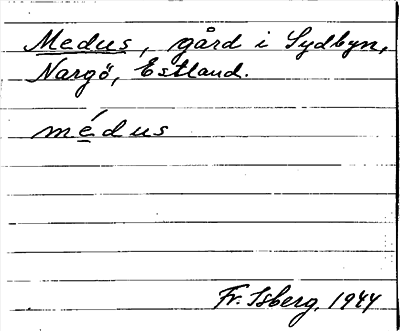 Medus, gård i Sydbyn,
Nargö, Estland.
médus
Fr. Isberg, 1944